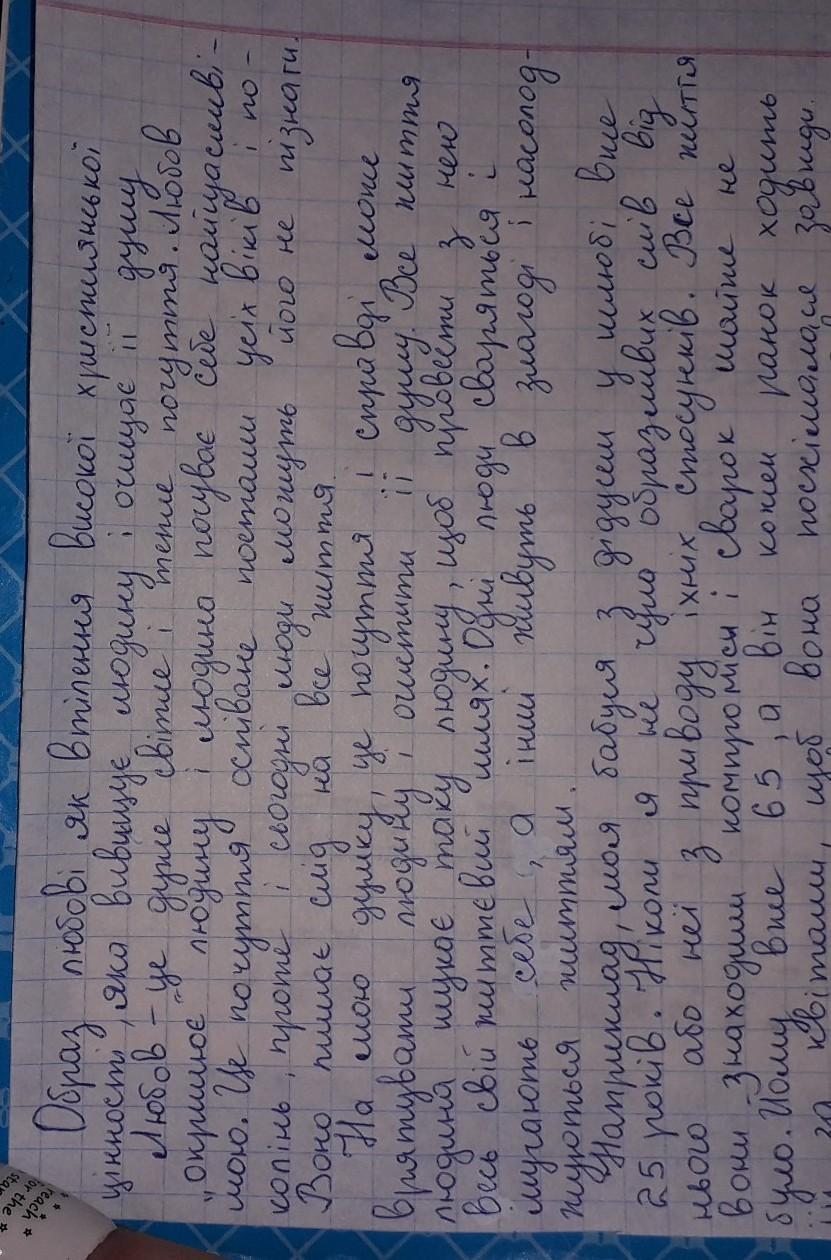 Образ любові як втілення високої християнської
цінності, яка вивищує людину і очищає її душу
Любов – це дуже світле і тепле почуття. Любов
"окрилює" людину і людина почуває себе найщасливі-
шою. Це почуття оспіване поетами усіх віків і по-
колінь, проте і сьогодні люди можуть його не пізнати.
Воно лишає слід на все життя.
На мою думку, це почуття і справді може
врятувати людину і очистити її душу. Все життя
людина шукає таку людину, щоб провести з нею
весь свій життєвий шлях. Одні люди сваряться і
мучають себе, а інші живуть в злагоді і насолод-
жуються життям.
Наприклад, моя бабуля з дідусем у шлюбі вже
25 років. Ніколи я не чула образливих слів від
нього або неї з приводу їхніх стосунків. Все життя
вони знаходили компроміси і сварок майже не
було. Йому вже 65, а він кожен ранок ходить
за квітами, щоб вона посміхалася завжди.
reach
for the
star